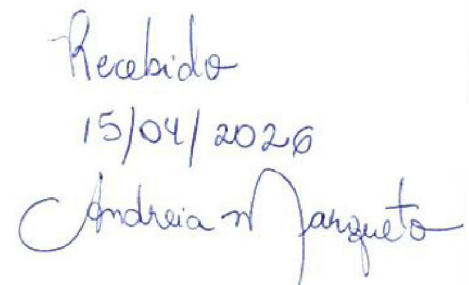 Recebido
15/04/2026
Andreia Marqueto